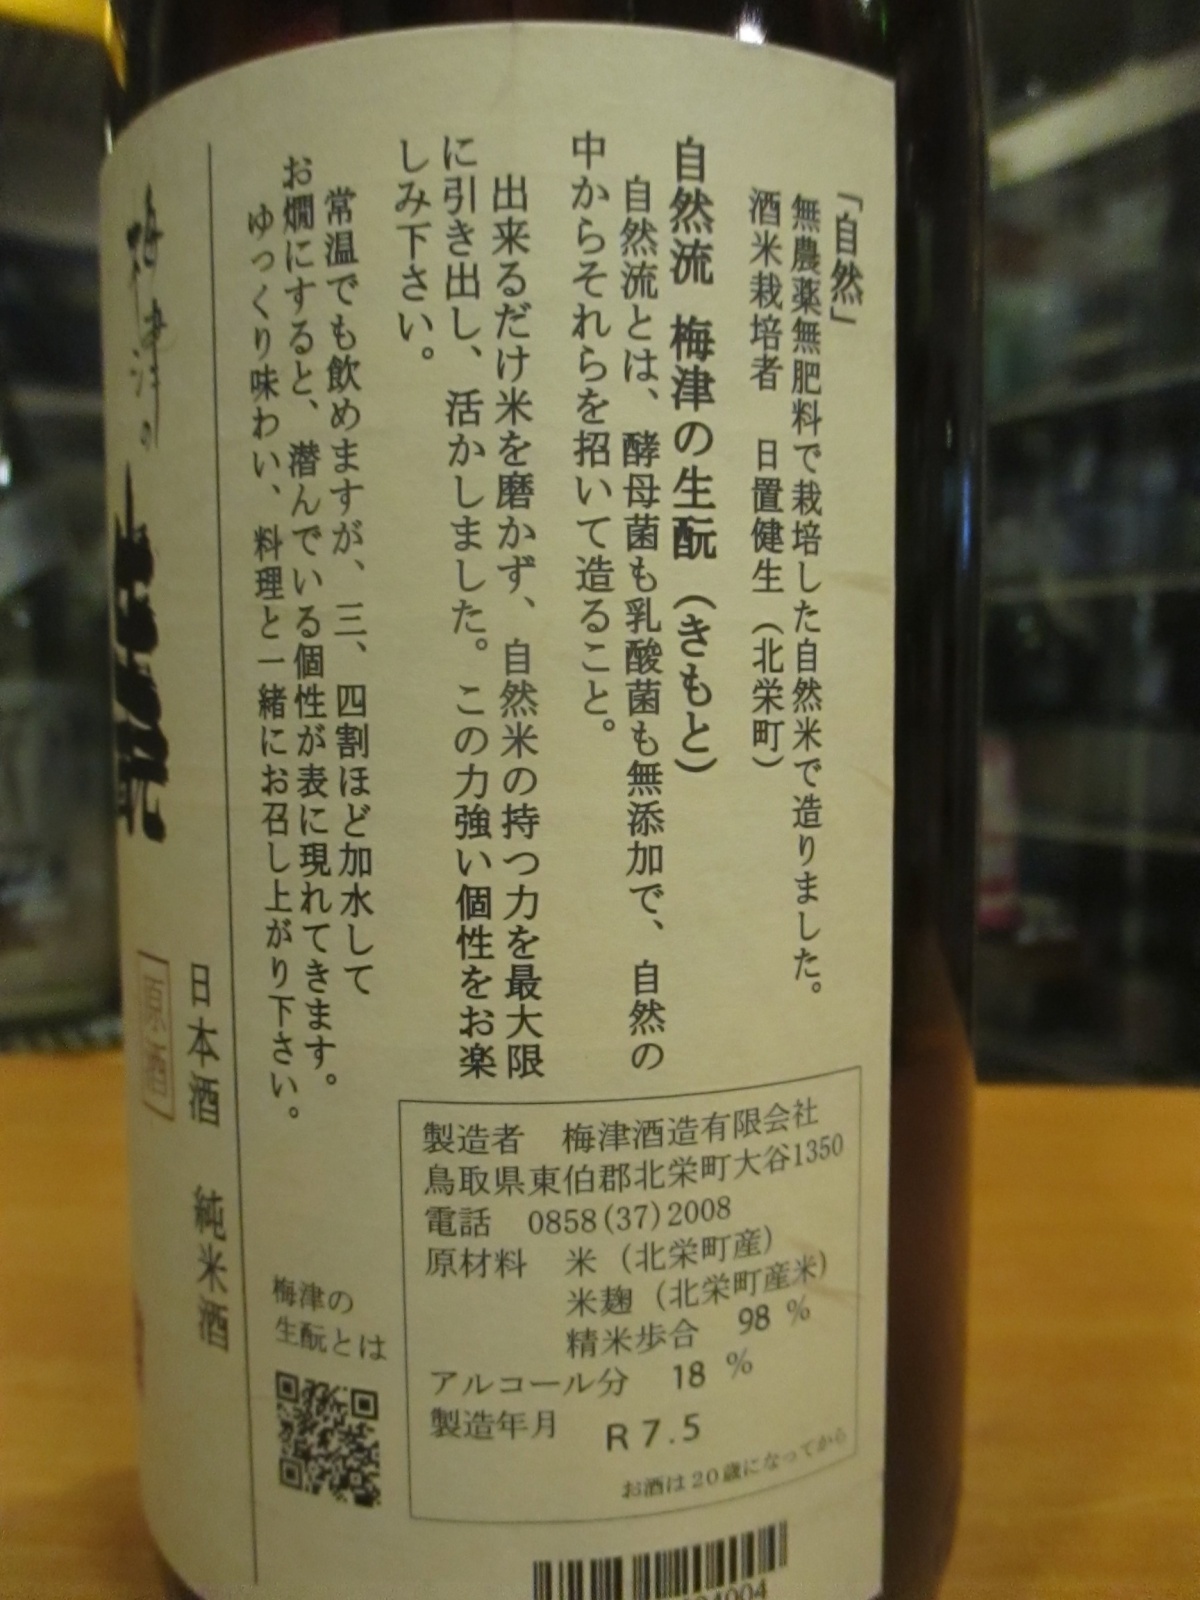 「自然」
無農薬無肥料で栽培した自然米で造りました。
酒米栽培者　日置健生（北栄町）
自然流　梅津の生酛（きもと）
自然流とは、酵母菌も乳酸菌も無添加で、自然の
中からそれらを招いて造ること。
出来るだけ米を磨かず、自然米の持つ力を最大限
に引き出し、活かしました。この力強い個性をお楽
しみ下さい。
常温でも飲めますが、三、四割ほど加水して
お燗にすると、潜んでいる個性が表に現れてきます。
ゆっくり味わい、料理と一緒にお召し上がり下さい。
製造者　梅津酒造有限会社
鳥取県東伯郡北栄町大谷1350
電話　0858(37)2008
原材料　米（北栄町産）
米麹（北栄町産米）
精米歩合　98 %
アルコール分　18 %
製造年月　R 7.5
お酒は20歳になってから
梅津の
生酛とは
日本酒　純米酒
原酒
梅津の
生酛